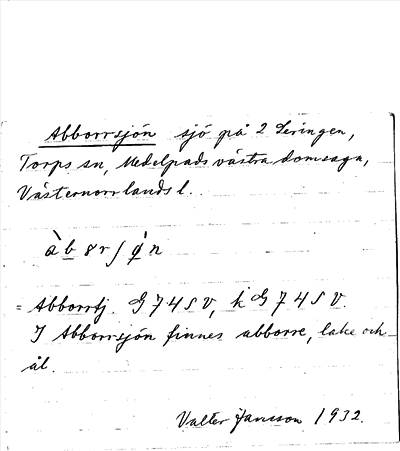 Abborrsjön sjö på 2 Leringen,
Torps sn, Medelpads västra domsaga,
Västernorrlands l.
= Abborrtj. G 7 4 S V, k G 7 4 S V.
I Abborrsjön finnes abborre, lake och
ål.
Valter Jansson 1932.